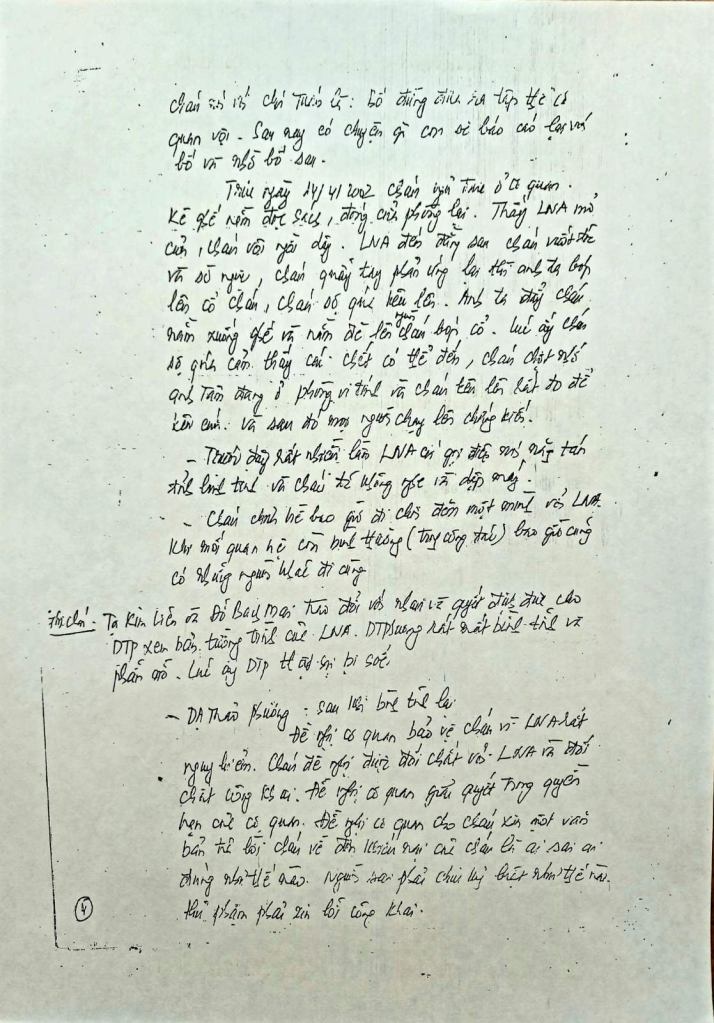 cháu nói với chú Tuấn là: bố đừng đưa ra tập thể cơ
quan vội. Sau này có chuyện gì con sẽ báo cáo lại với
bố và nhờ bố sau.
Trưa ngày 14/4/2002 cháu nghỉ trưa ở cơ quan.
Kê ghế nằm đọc sách, đóng cửa phòng lại. Thấy LNA mở
cửa, cháu vội ngồi dậy. LNA đến đằng sau cháu vuốt tóc
và sờ ngực, cháu quay tay phản ứng lại thì anh ta bóp
lên cổ cháu, cháu sợ quá kêu lên. Anh ta đẩy cháu
nằm xuống ghế và nằm đè lên người cháu bóp cổ. Lúc ấy cháu
sợ quá cảm thấy cái chết có thể đến, cháu chợt nhớ
anh Tân đang ở phòng vi tính và cháu rên lên rất to để
kêu cứu. và sau đó mọi người chạy lên chứng kiến.
- Trước đây rất nhiều lần LNA có gọi điện nói năng tán
tỉnh linh tinh và cháu không nghe và dập máy.
- Cháu chưa hề bao giờ đi chơi đêm một mình với LNA.
Khi mối quan hệ còn bình thường (trong công tác) bao giờ cũng
có những người khác đi cùng
Ghi chú: Tạ Kim Liên và Đỗ Bạch Mai trao đổi với nhau và quyết định đưa cho
DTP xem bản tường trình của LNA. DTP sau rất mất bình tĩnh và
phẫn nộ. Lúc ấy DTP thật sự bị sốc.
- DẠ Thảo Phương: sau khi bình tĩnh lại
Đề nghị cơ quan bảo vệ cháu vì LNA rất
nguy hiểm. Cháu đề nghị được đối chất với LNA và đối
chất công khai. Đề nghị cơ quan giải quyết trong quyền
hạn của cơ quan. Đề nghị cơ quan cho cháu xin một văn
bản trả lời cháu về đơn khiếu nại của cháu là ai sai ai
đúng như thế nào. Người sai phải chịu kỷ luật như thế nào.
thủ phạm phải xin lỗi công khai.
4